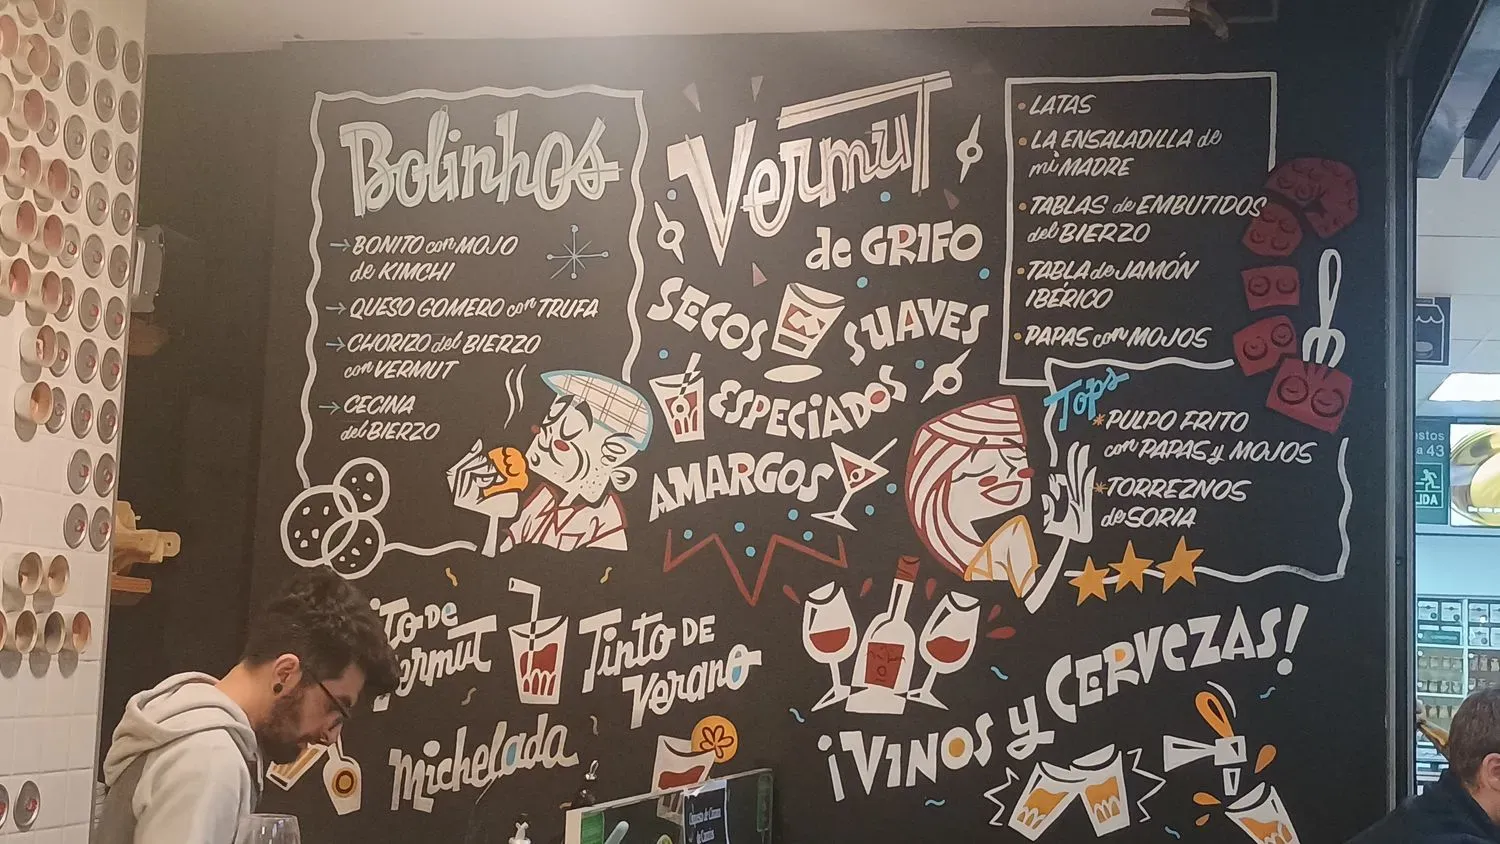 Bolinhos
BONITO con MOJO
de KIMCHI
QUESO GOMERO con TRUFA
CHORIZO del BIERZO
con VERMUT
CECINA
del BIERZO
Vermut
de GRIFO
SECOS
SUAVES
ESPECIADOS
AMARGOS
LATAS
LA ENSALADILLA de
mi MADRE
TABLAS de EMBUTIDOS
del BIERZO
TABLA de JAMÓN
IBÉRICO
PAPAS con MOJOS
Tops
PULPO FRITO
con PAPAS y MOJOS
TORREZNOS
de SORIA
DE
Vermut
Tinto DE
Verano
Michelada
¡VINOS y CERVEZAS!
43